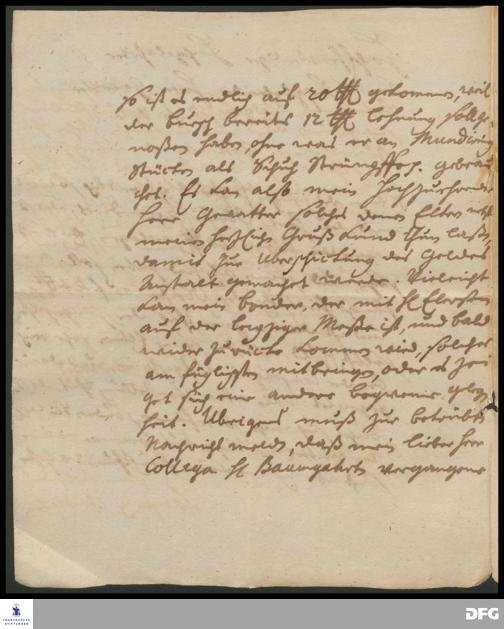 so ist es endlich auf 20 thl gekommen, weil
der bursch bereits 12 thl lohnung soll ge-
noßen haben, ohne was er an Mundirung
Stücken als Schuh Strümpffe p. gebrau-
chet. Es kan also mein Hochzuehrender
Herr Gevatter solches denen Eltern nebst
meinem herzlichen Gruß kund thun laßen,
damit zur Uberschickung des Geldes
Anstalt gemachet werde. Vieleicht
kan mein bruder, der mit H. Elers
auf der leipziger Meße ist, und bald
wider zurücke kommen wird, solches
am füglichsten mitbringen, oder es zei-
get sich eine andere bequeme gelegen-
heit. Ubrigens muß zur betrübten
Nachricht melden, daß mein lieber Herr
Collega H. Baumgarten vergangene
FRANCKESCHE
STIFTUNGEN
DFG